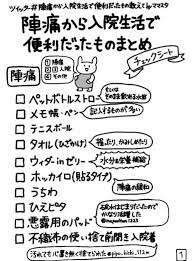 ツイッター#陣痛から入院生活で便利だった物教えて byママスタ
陣痛から入院生活で
便利だったものまとめ
チェックシート
陣痛
1 陣痛
2 入院
3 その他
ペットボトルストロー
もしくはそのまま飲める水筒
メモ帳・ペン
記入するものが多い
テニスボール
タオル(ひざかけ)
握ったり、かみしめたり
ウィダーinゼリー
水分&栄養補給
ホッカイロ(貼るタイプ)
陣痛の緩和
うちわ
ひえピタ
悪露用のパッド
不織布の使い捨て前開き入院着
汚れてもいい
1